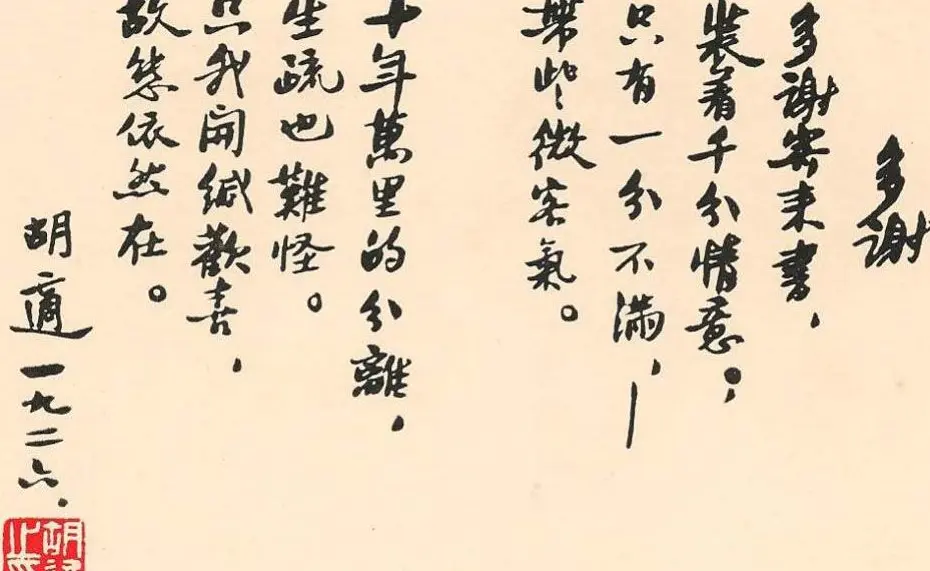 多謝
多謝寄來書，
裝着千分情意；
只有一分不滿，—
帶些微客氣。
十年萬里的分離，
生疏也難怪。
只我開緘歡喜，
故態依然在。
胡適 一九二六，